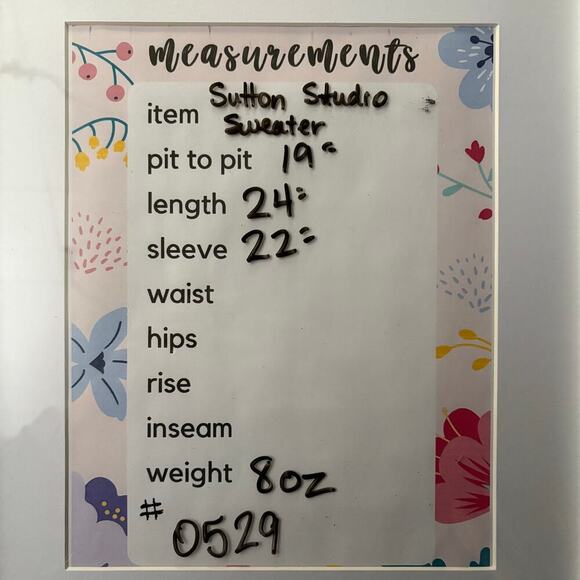 measurements
item Sutton Studio
Sweater
pit to pit 19"
length 24"
sleeve 22"
waist
hips
rise
inseam
weight 8oz
# 0529